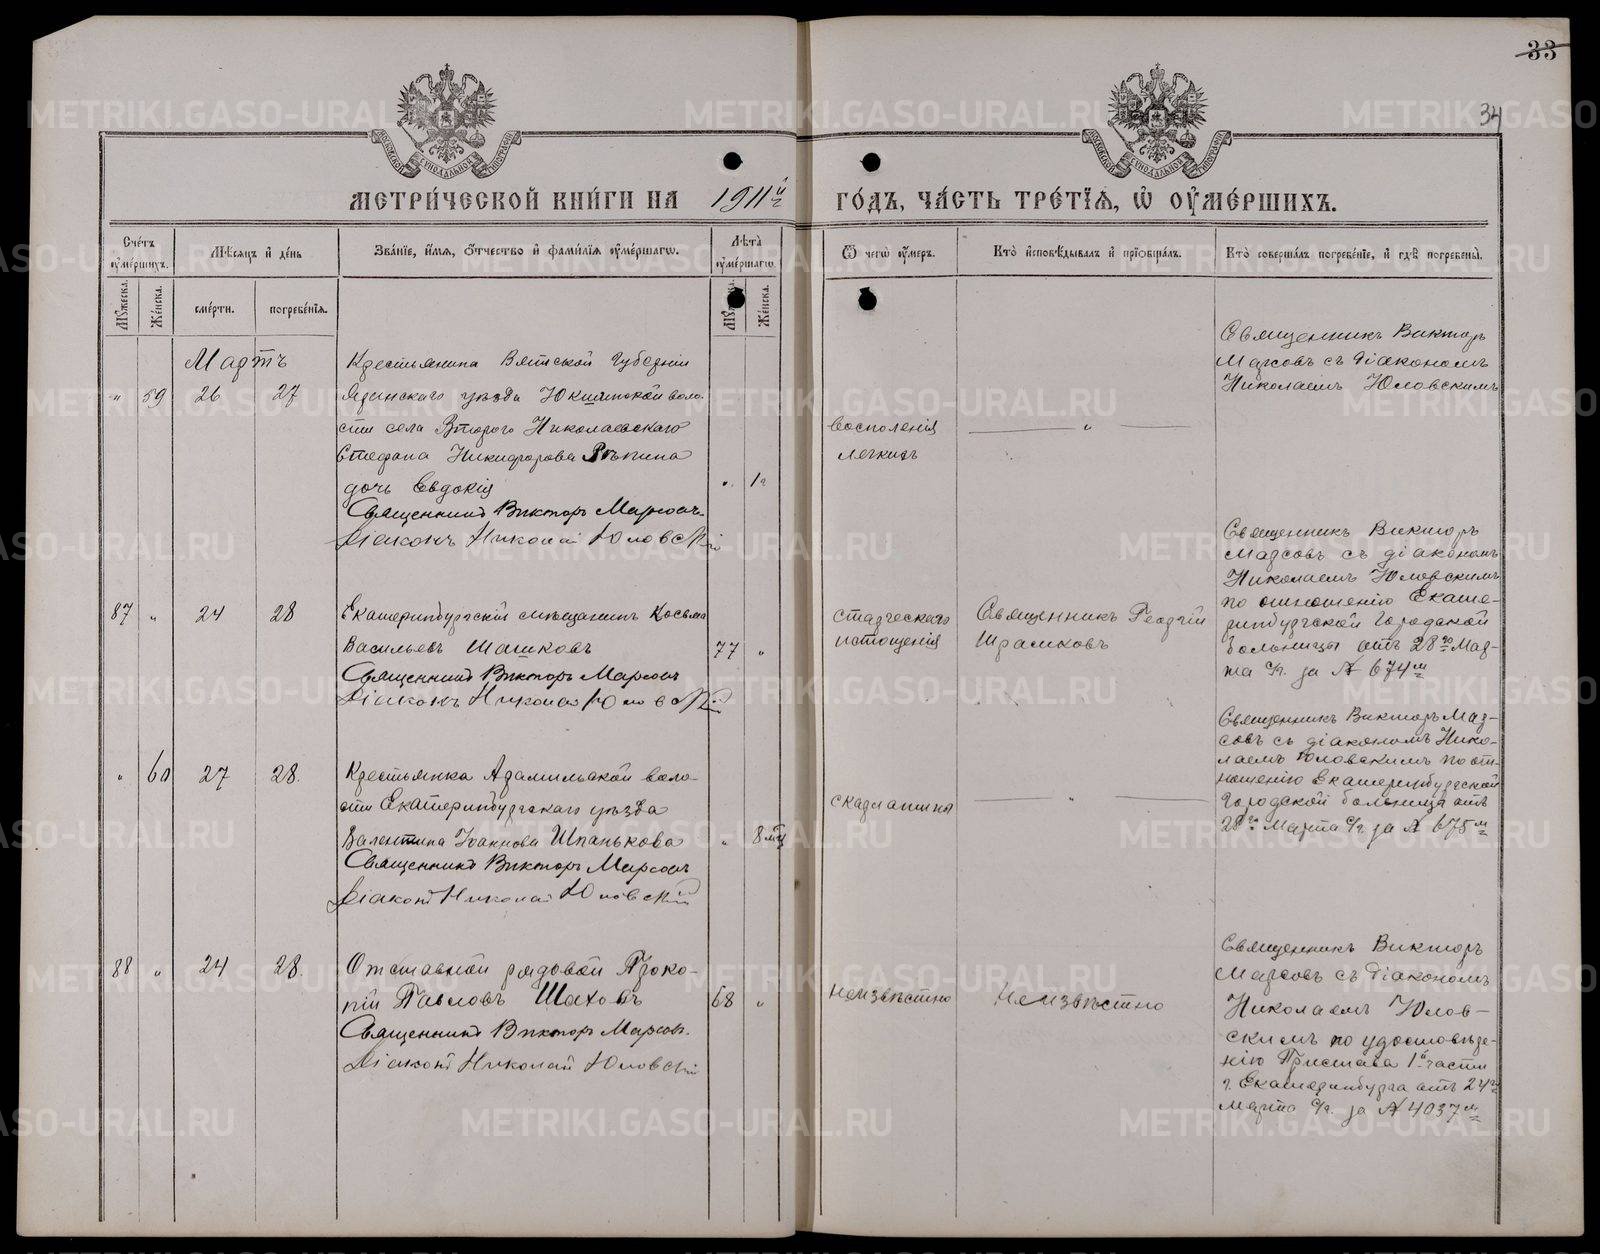 33
34
МЕТРИ́ЧЕСКОЙ КНИ́ГИ НА 1911й ГО́ДЪ, ЧА́СТЬ ТРЕ́ТІѦ, Ѽ ОУ҆МЕ́РШИХЪ.
Сче́тъ оу҆ме́ршихъ.
Мѣ́сѧцъ и҆ де́нь
Зва́нїе, и҆́мѧ, ѻ҆́тчество и҆ фами́лїѧ оу҆ме́ршагѡ.
Лѣ́та оу҆ме́ршагѡ.
Ѿ чегѡ̀ оу҆́меръ.
Кто̀ и҆сповѣ́дывалъ и҆ прїѡбща́лъ.
Кто̀ соверша́лъ погребе́нїе, и҆ гдѣ̀ погребены̀.
Мꙋ́жеска.
Же́нска.
сме́рти.
погребе́нїѧ.
Же́нска.
Мартъ
„ 59 26 27
Крестьянина Вятской губерніи
Яранского уѣзда Юкшинской воло-
сти села Второго Николаевскаго
Стефана Никифорова Рѣпина
дочь Евдокія
„ 1 г
Священникъ Викторъ Марсовъ.
Діаконъ Николай Юловскій
воспаленія
легкихъ
„
Священникъ Викторъ
Марсовъ съ діакономъ
Николаемъ Юловскимъ
87 „ 24 28
Екатеринбургскій мѣщанинъ Косьма
Васильевъ Шашковъ
77 „
Священникъ Викторъ Марсовъ
Діаконъ Николай Юловскій
старческаго
истощенія
Священникъ Георгій
Шрамковъ
Священникъ Викторъ
Марсовъ съ діакономъ
Николаемъ Юловскимъ
по отношенію Екате-
ринбургской городской
больницы отъ 28го Мар-
та с/г. за № 674м
„ 60 27 28.
Крестьянка Арамильской воло-
сти Екатеринбургскаго уѣзда
Валентина Іоаннова Шпанькова
„ 8 мѣц
Священникъ Викторъ Марсовъ
Діаконъ Николай Юловскій
скарлатины
„
Священникъ Викторъ Мар-
совъ съ діакономъ Нико-
лаемъ Юловскимъ по от-
ношенію Екатеринбургской
городской больницы отъ
28го Марта с/г за № 675м
88 „ 24 28.
Отставной рядовой Проко-
пій Павловъ Шаховъ
68 „
Священникъ Викторъ Марсовъ.
Діаконъ Николай Юловскій
неизвѣстно
Неизвѣстно
Священникъ Викторъ
Марсовъ съ діакономъ
Николаемъ Юлов-
скимъ по удостовѣре-
нію Пристава 1й части
г. Екатеринбурга отъ 24го
Марта с/г. за № 4037м
METRIKI.GASO-URAL.RU